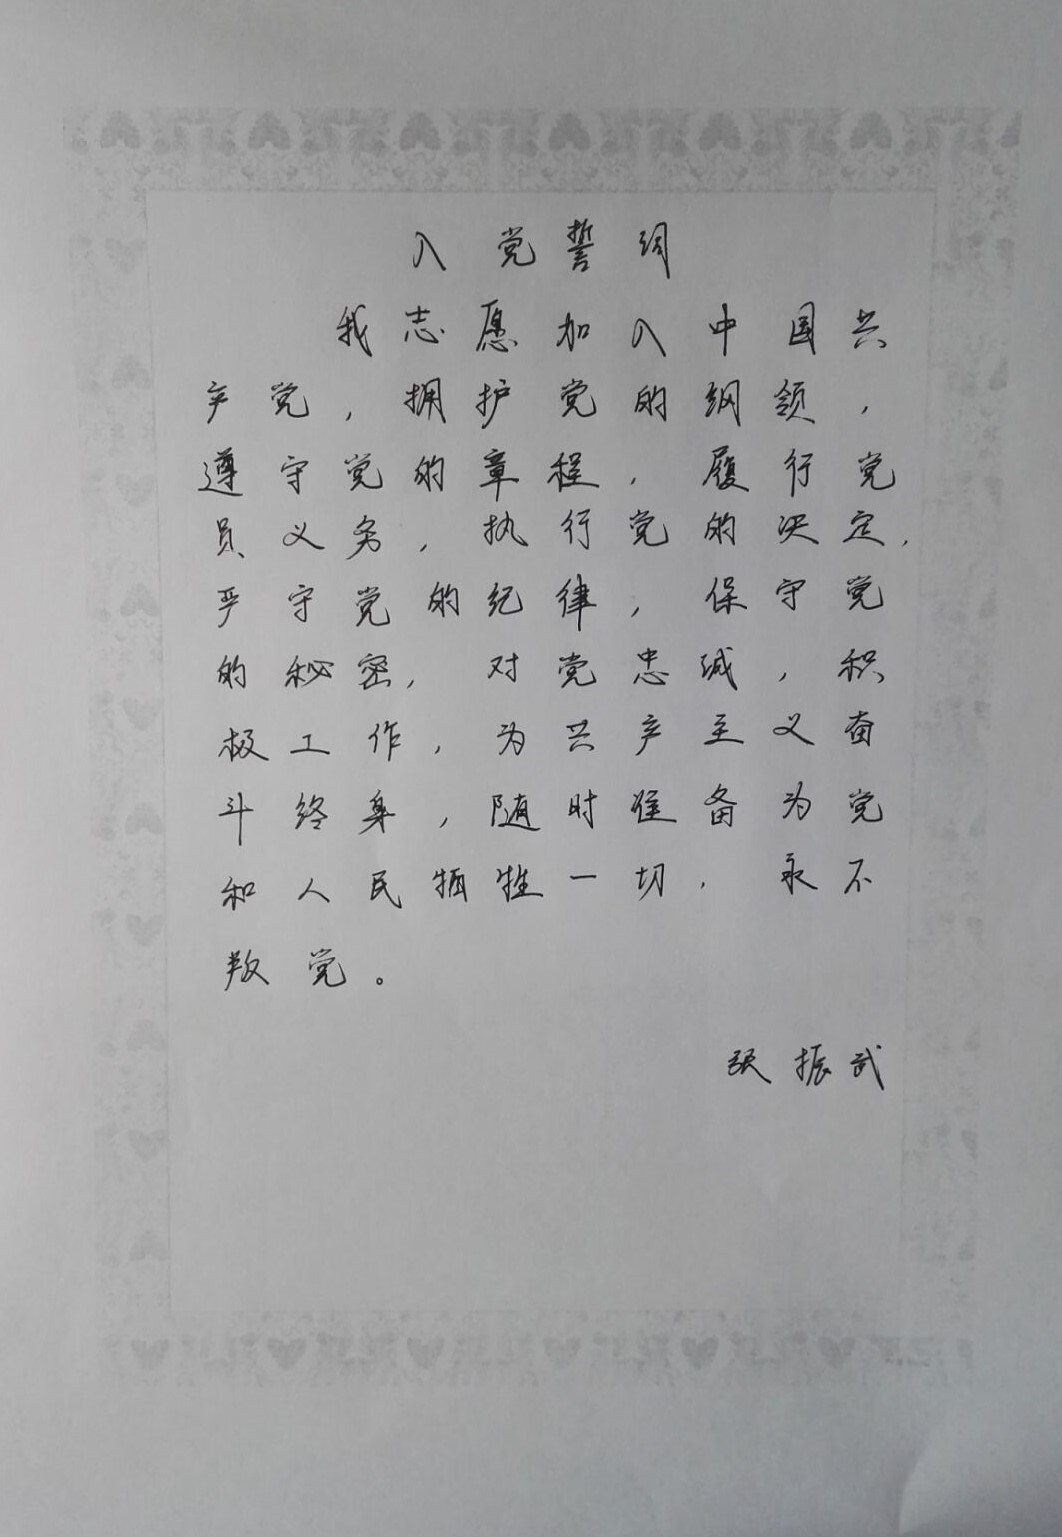 入党誓词
我志愿加入中国共
产党，拥护党的纲领，
遵守党的章程，履行党
员义务，执行党的决定，
严守党的纪律，保守党
的秘密，对党忠诚，积
极工作，为共产主义奋
斗终身，随时准备为党
和人民牺牲一切，永不
叛党。
张振武